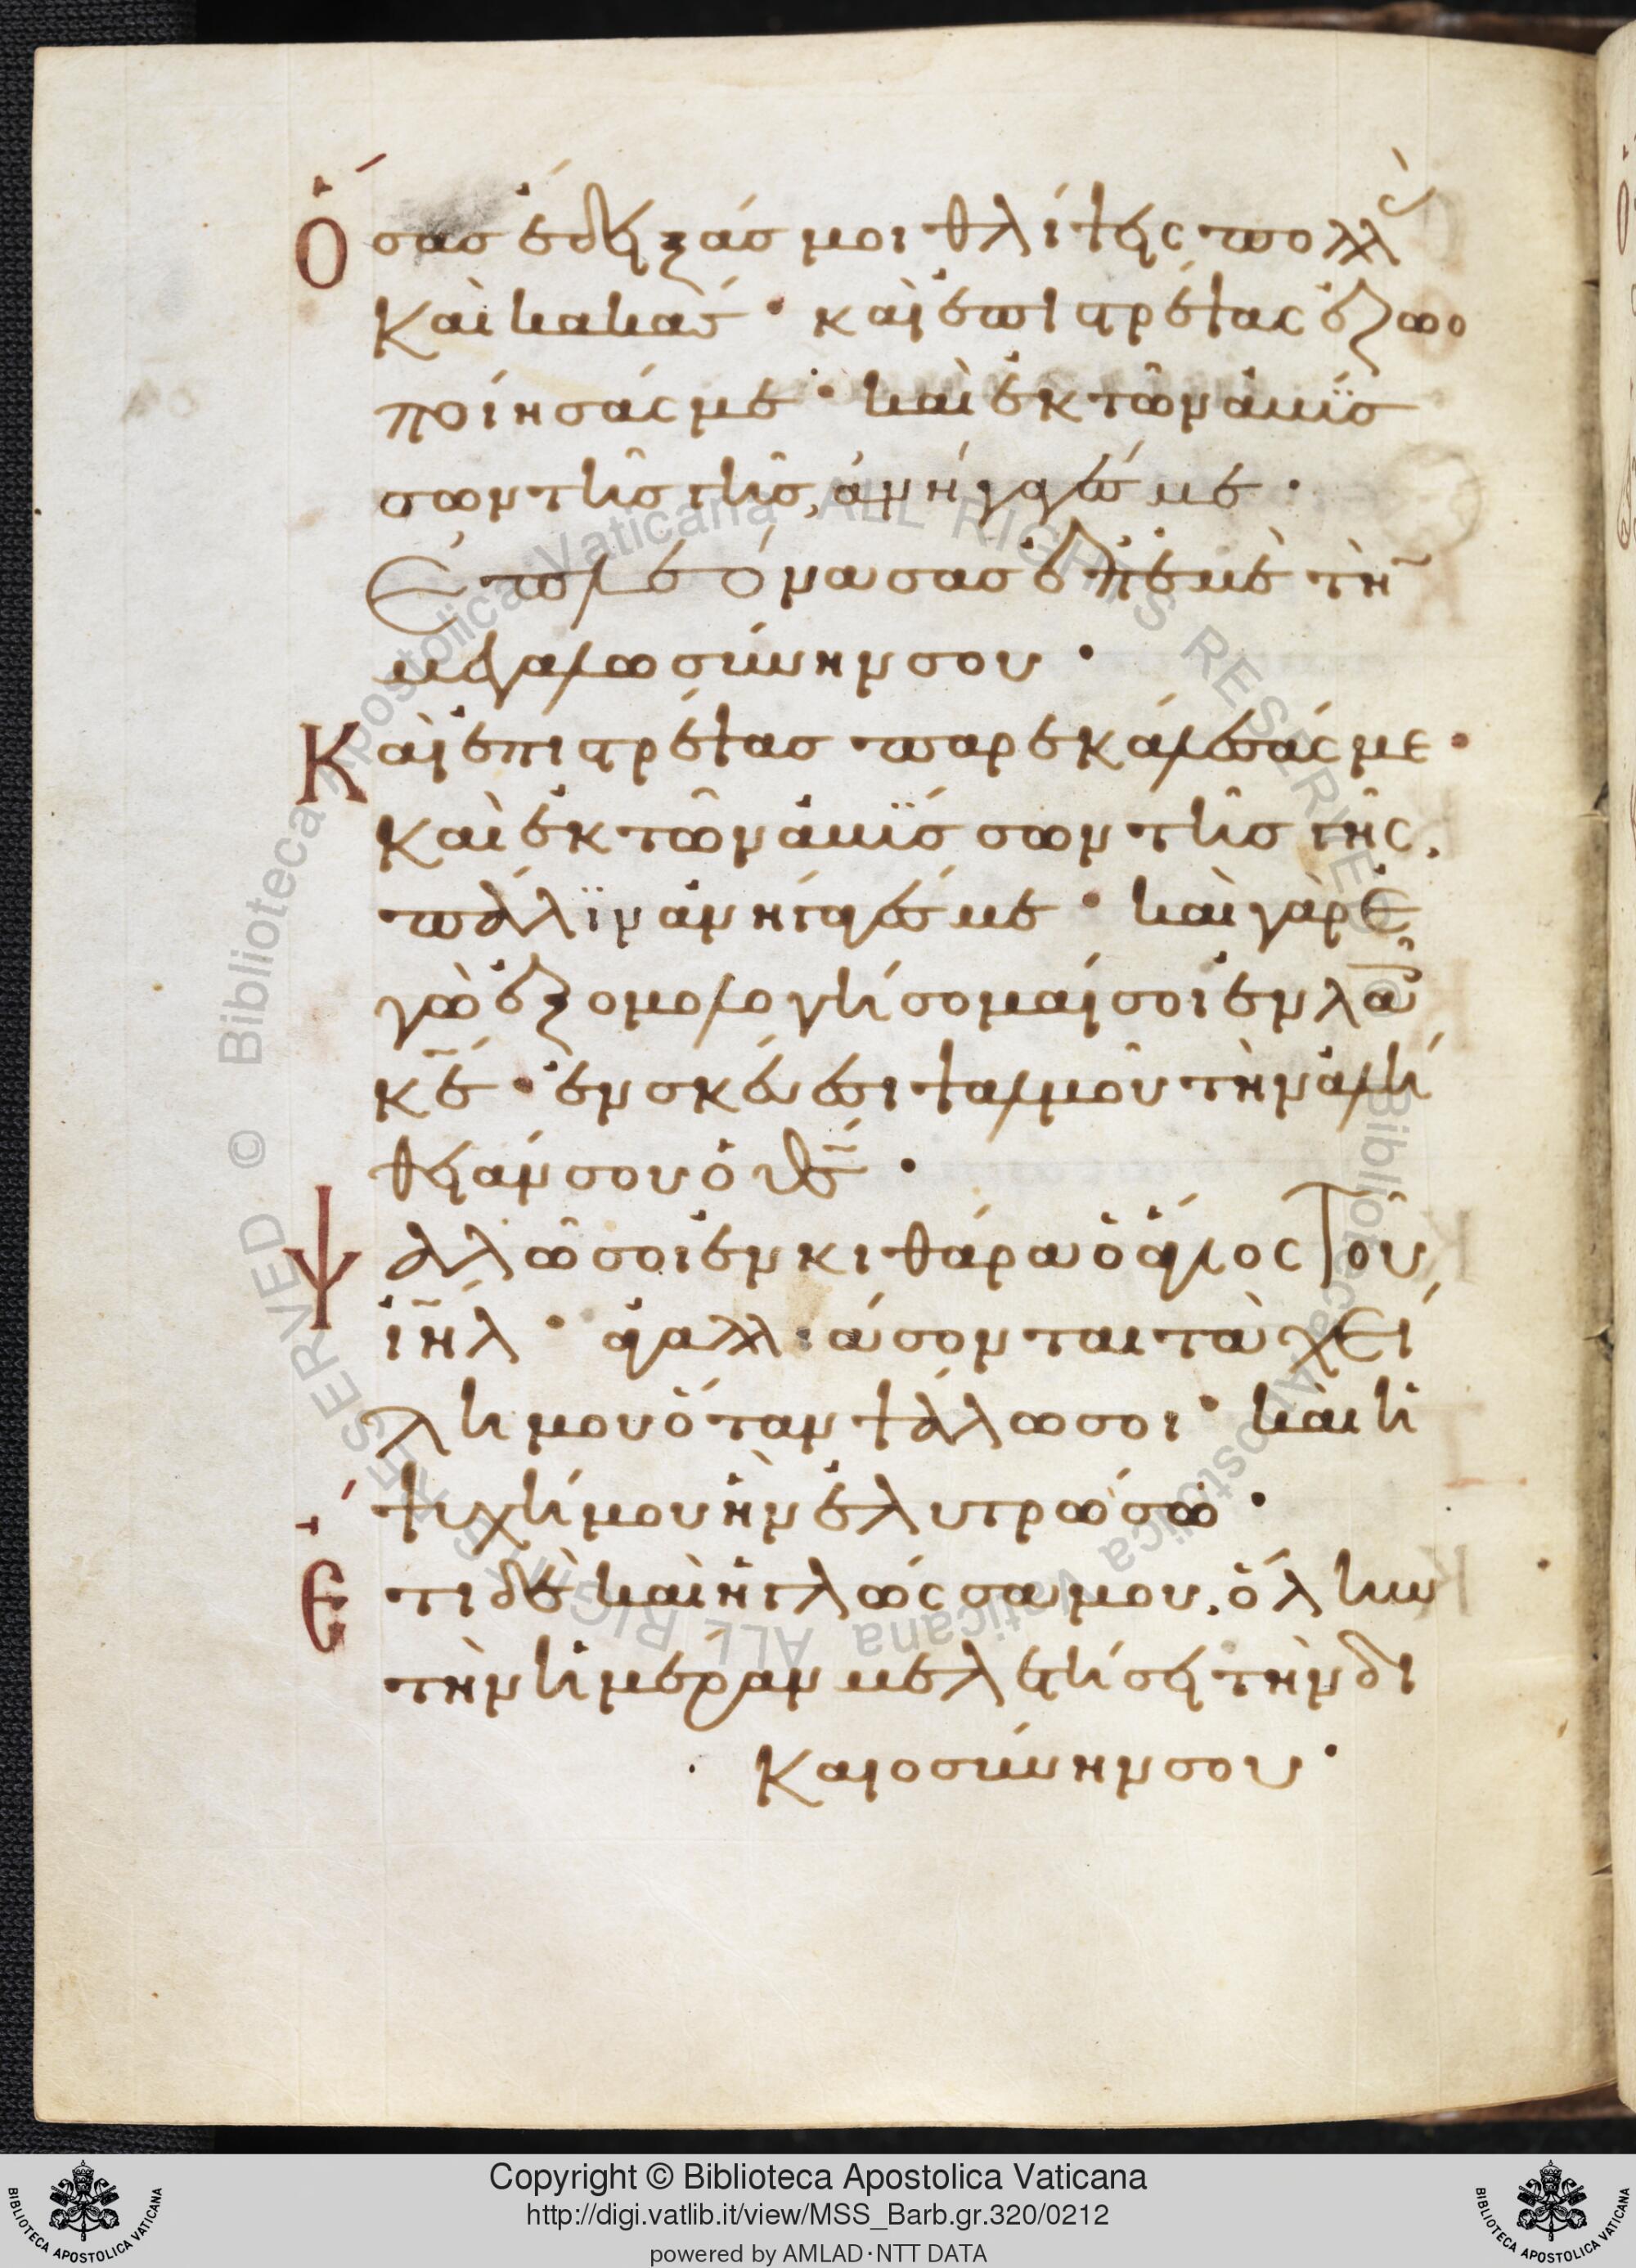 Ὅσας ἔδειξάς μοι θλίψεις πολλὰς
καὶ κακάς· καὶ ἐπιστρέψας ἐζωο
ποίησάς με· καὶ ἐκ τῶν ἀβύσ
σων τῆς γῆς, ἀνήγαγές με·
Ἐπλεόνασας ἐπ' ἐμὲ τὴν
μεγαλωσύνην σου·
Καὶ ἐπιστρέψας παρεκάλεσάς με·
καὶ ἐκ τῶν ἀβύσσων τῆς γῆς,
πάλιν ἀνήγαγές με· καὶ γὰρ ἐ
γὼ ἐξομολογήσομαί σοι ἐν λαοῖς
κε· ἐν σκεύει ψαλμοῦ τὴν ἀλή
θειάν σου ὁ θς·
Ψαλῶ σοι ἐν κιθάρα ὁ ἅγιος τοῦ
ιηλ· ἀγαλλιάσονται τὰ χεί
λη μου ὅταν ψάλω σοι· καὶ ἡ
ψυχή μου ἣν ἐλυτρώσω·
Ἔτι δὲ καὶ ἡ γλῶσσα μου, ὅλην
τὴν ἡμέραν μελετήσει τὴν δι
καιοσύνην σου·
Copyright © Biblioteca Apostolica Vaticana
http://digi.vatlib.it/view/MSS_Barb.gr.320/0212
powered by AMLAD·NTT DATA
BIBLIOTECA APOSTOLICA VATICANA
BIBLIOTECA APOSTOLICA VATICANA
© Biblioteca Apostolica Vaticana ALL RIGHTS RESERVED
© Biblioteca Apostolica Vaticana ALL RIGHTS RESERVED